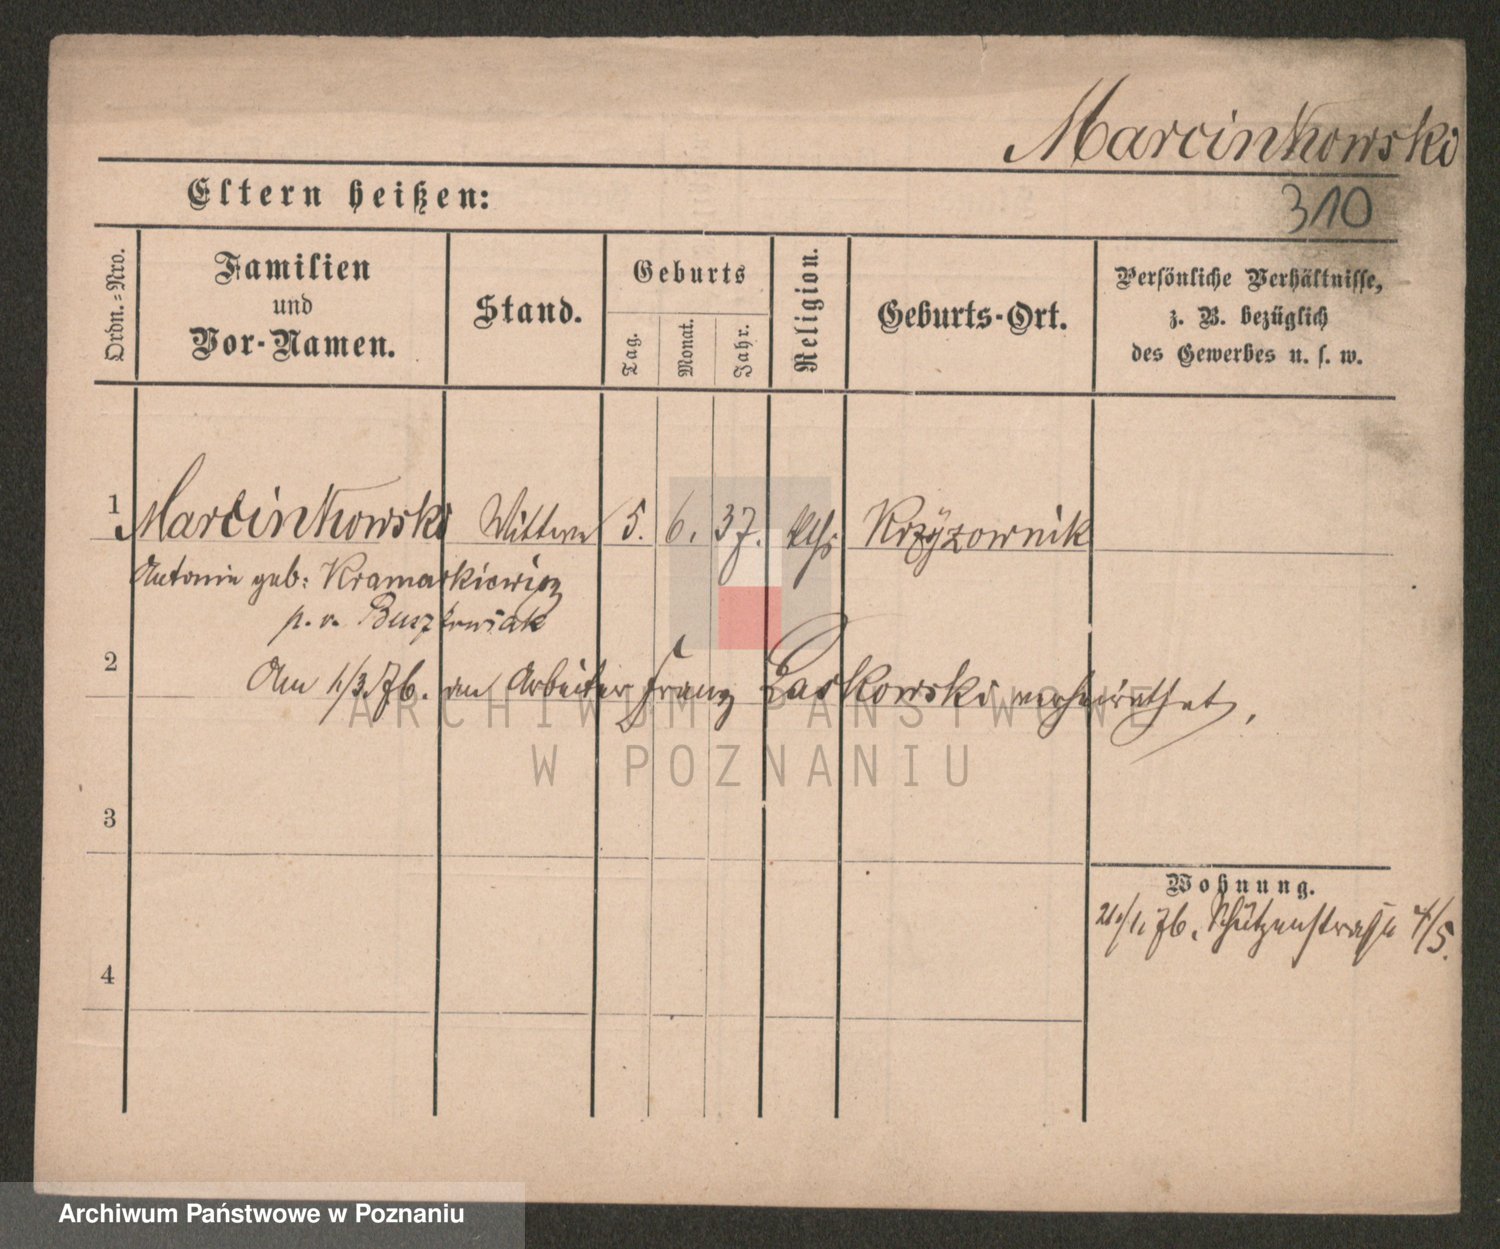 Marcinkowski
Eltern heißen:
310
Ordn.=Nro.
Familien
und
Vor-Namen.
Stand.
Geburts
Tag.
Monat.
Jahr.
Religion.
Geburts-Ort.
Persönliche Verhältnisse,
z. B. bezüglich
des Gewerbes u. s. w.
1 Marcinkowski Wittwe 5. 6. 37. kth: Krzÿzownik
Antonie geb: Kramarkiewicz
p. v. Buszkowiak
2
Am 1/3.76. an Arbeiter Franz Laskowski verheirathet,
3
Wohnung.
21/1.76. Schützenstraße 4/5.
4
ARCHIWUM PAŃSTWOWE
W POZNANIU
Archiwum Państwowe w Poznaniu